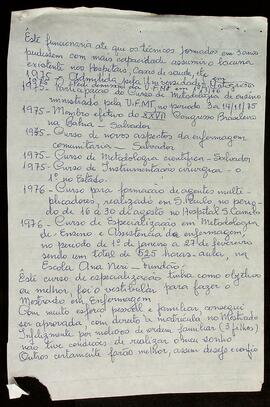 Este funcionaria até que os técnicos formados em 3 anos
pudessem com mais capacidade assumir a lacuna
existente nos Hospitais, Casas de saúde, etc
1975 - Admitida pela Universidade
1975 - Participação do Curso de Metodologia de ensino
ministrado pela U.F.MT, no período 3 a 14/11/75
1975 - Membro efetivo do XXVII Congresso Brasileiro
na Bahia - Salvador
1975 - Curso de novos aspectos da enfermagem
comunitaria - Salvador
1975 - Curso de Metodologia científica - Salvador
1975 - Curso de Instrumentação cirurgica - o
1º no Estado.
1976 - Curso para formação de agentes multi-
plicadores, realizado em S. Paulo no perio-
do de 16 a 30 de agosto no Hospital S.
1976 - Curso de Especialização em Metodologia
de Ensino e Assistência da enfermagem
no período de 1º de janeiro a 27 de fevereiro
sendo um total de 525 horas-aula, na
Escola Ana Neri - Fundão
Este curso de especialização tinha como objetivo
ou melhor, foi o vestibular para fazer o
Mestrado em Enfermagem
Com muito esforço pessoal e familiar consegui
ser aprovada, com direito à matrícula no Mestrado
Infelizmente por motivos de ordem familiar (3 filhos)
não tive condições de realizar o meu sonho
Outros certamente farão melhor, assim desejo e confio